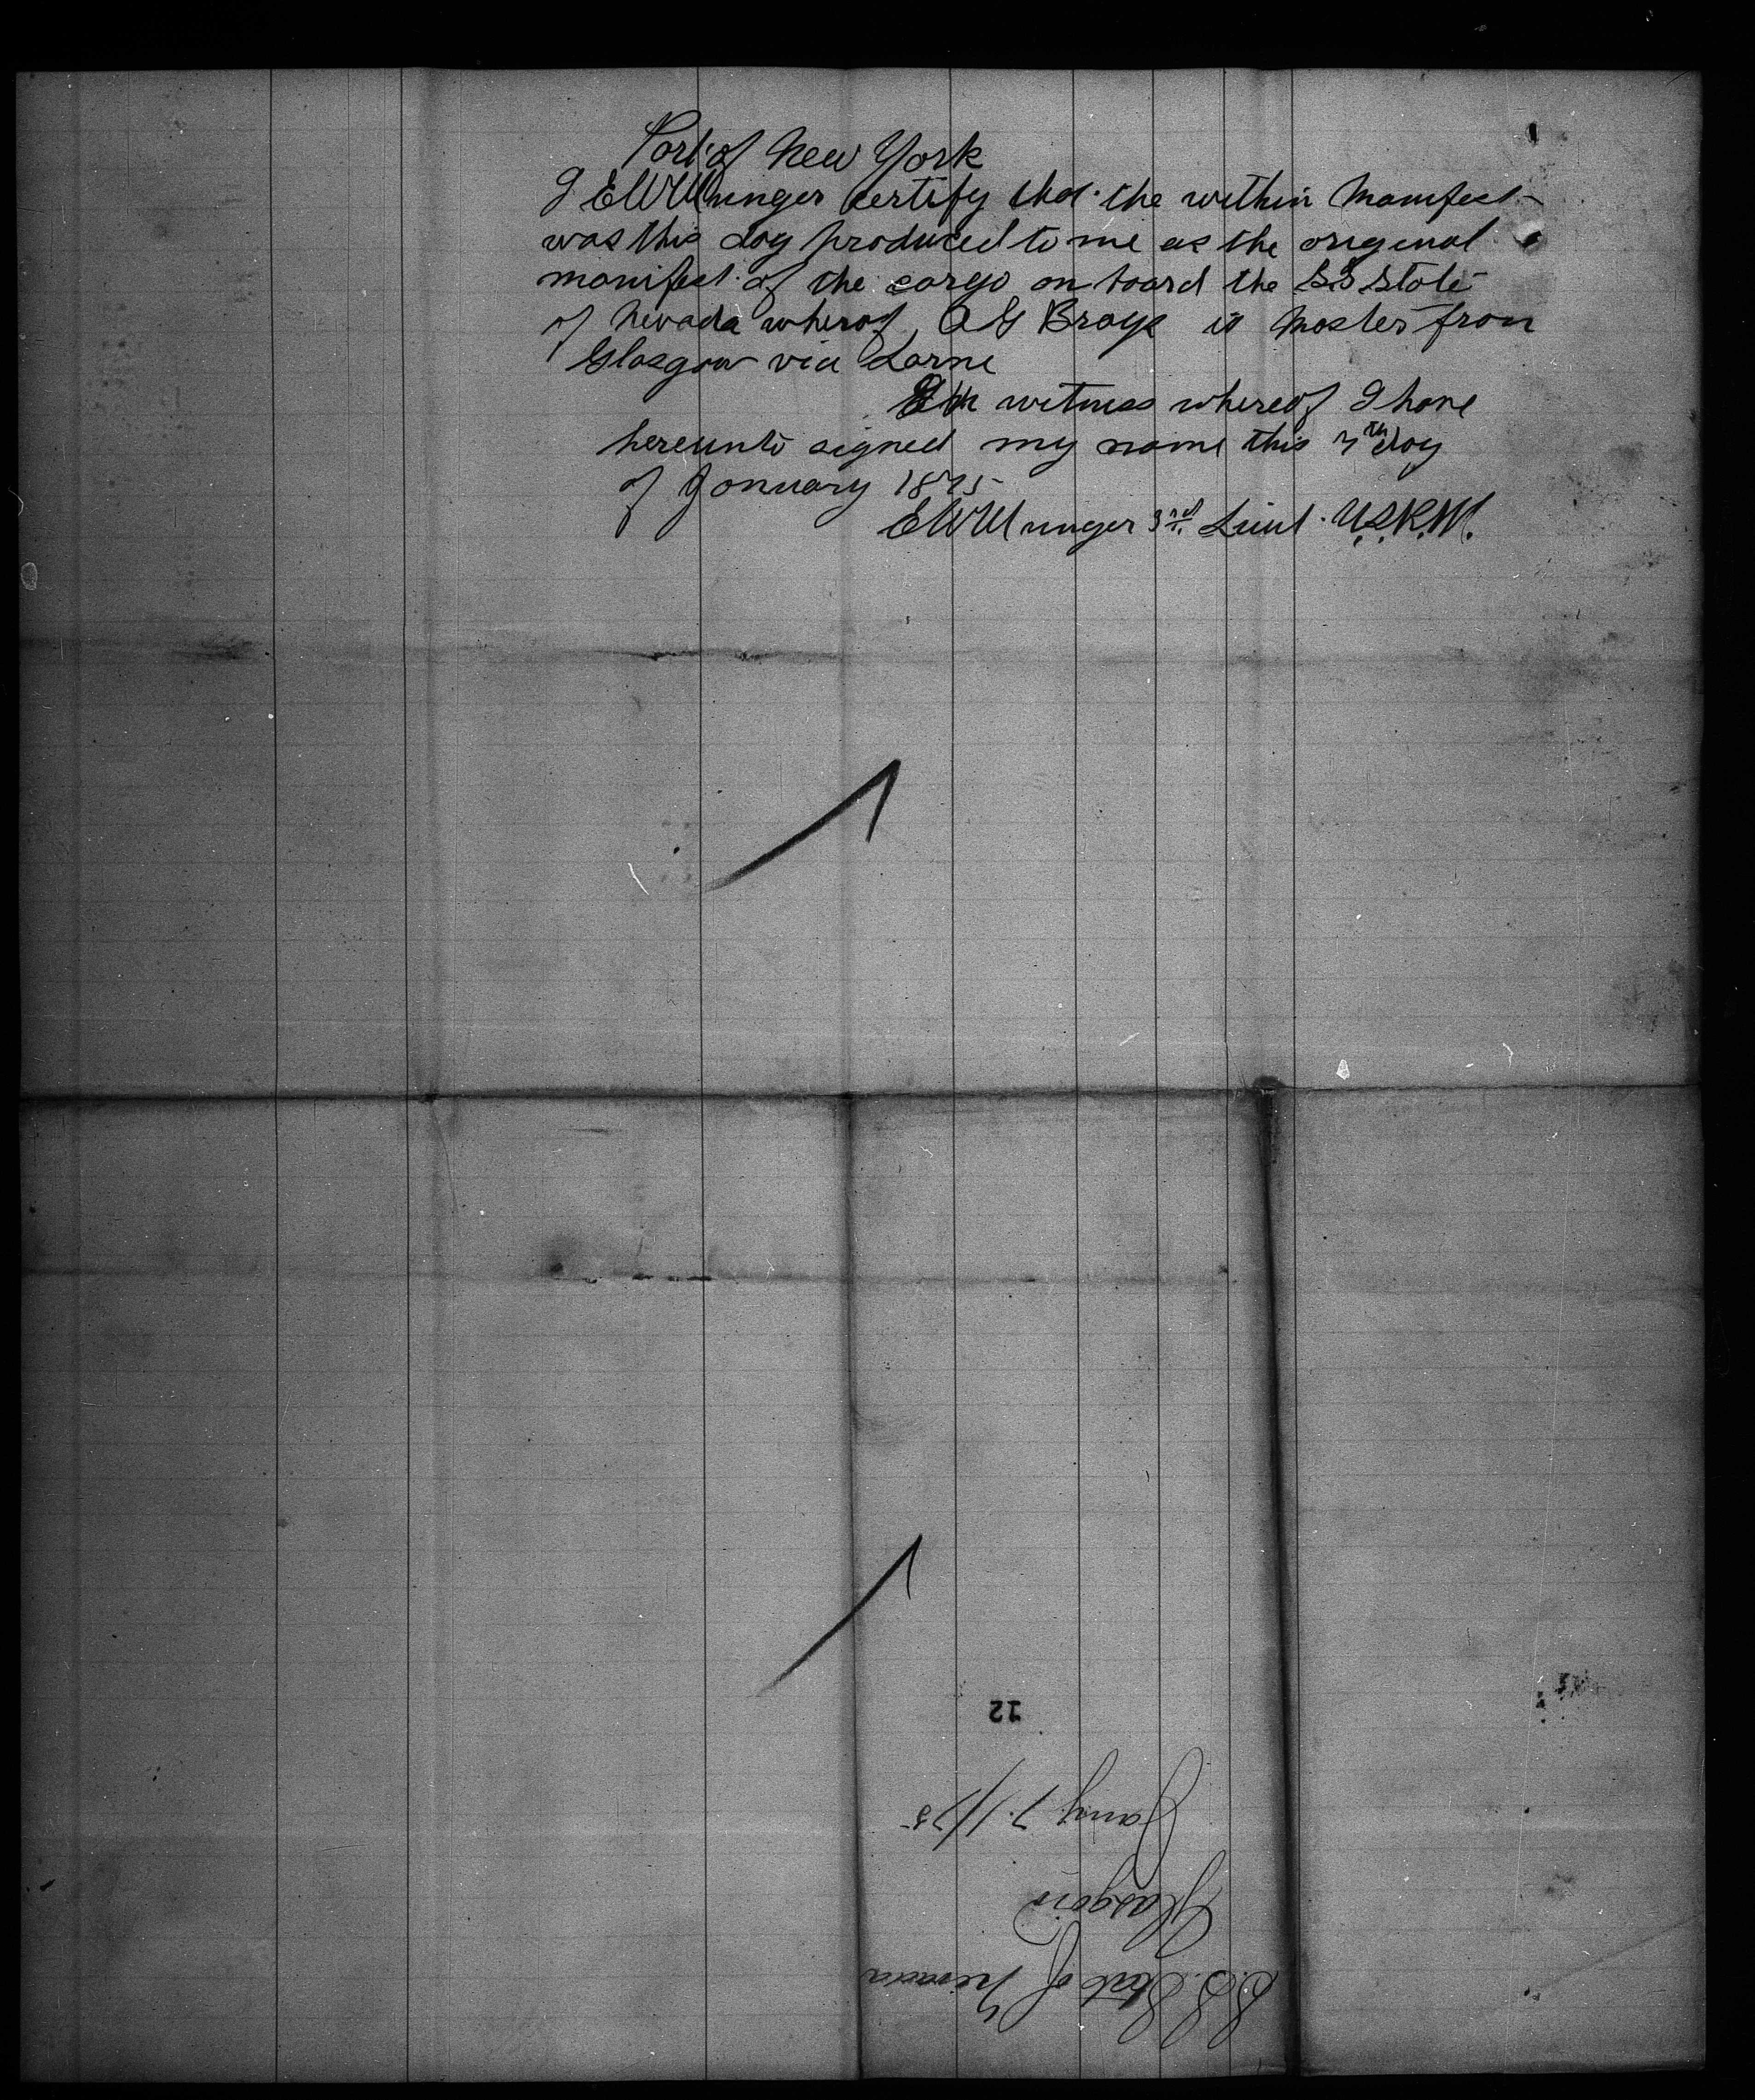 Port of New York
I EWMunger certify that the within Manifest
was this day produced to me as the original
manifest of the cargo on board the SS State
of Nevada wherof, A G Brays is Master from
Glasgow via Larne
In witness whereof I have
hereunto signed my name this 7th day
of January 1875
EWMunger 3rd Lieut. U.S.R.M.
12
S.S. State of Nevada
Glasgow
Jany. 7. 1/75